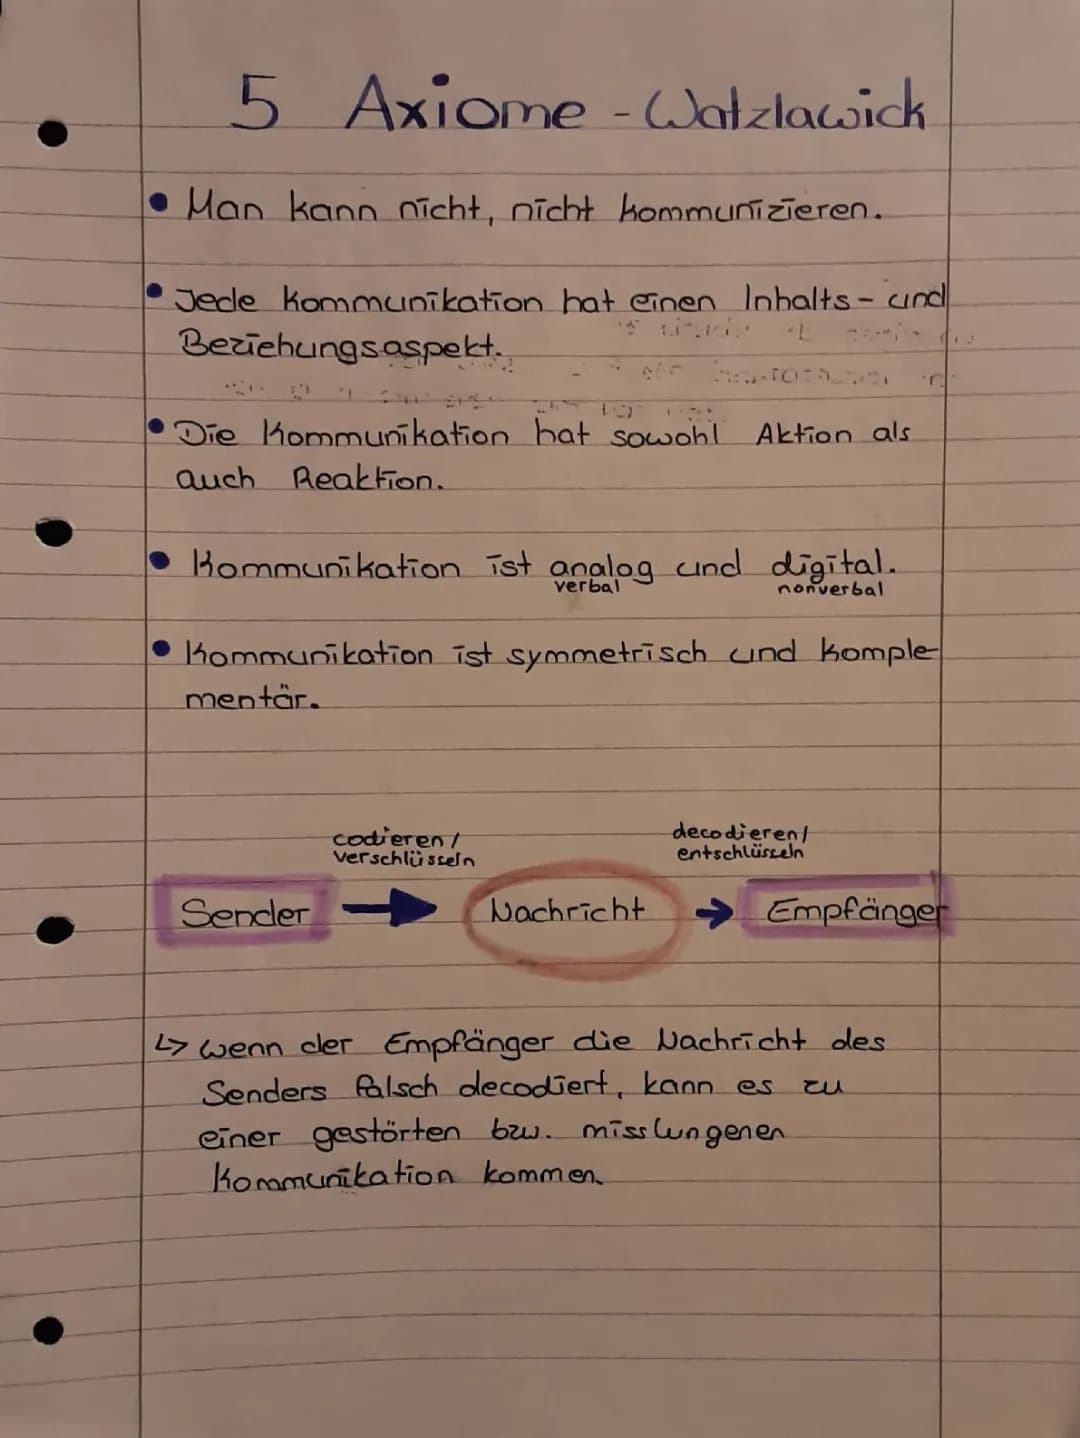 5 Axiome - Watzlawick
• Man kann nicht, nicht kommunizieren.
• Jede Kommunikation hat einen Inhalts- und
Beziehungsaspekt.
• Die Kommunikation hat sowohl Aktion als
auch Reaktion.
• Kommunikation ist analog und digital.
verbal nonverbal
• Kommunikation ist symmetrisch und komple-
mentär.
codieren / decodieren /
verschlüsseln entschlüsseln
Sender → Nachricht → Empfänger
↳ wenn der Empfänger die Nachricht des
Senders falsch decodiert, kann es zu
einer gestörten bzw. misslungenen
Kommunikation kommen.